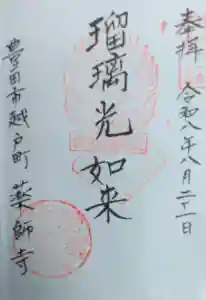 奉拝 令和八年八月二十一日
瑠璃光如来
豊田市越戸町 薬師寺